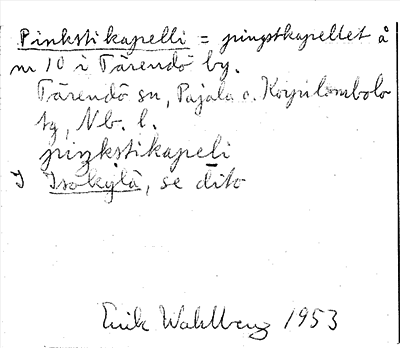 Pinkstikapelli = pingstkapellet å
nr 10 i Tärendö by.
Tärendö sn, Pajala o. Korpilombolo
tg, Nb. l.
piŋkstikapeli
I Isokylä, se dito
Erik Wahlberg 1953